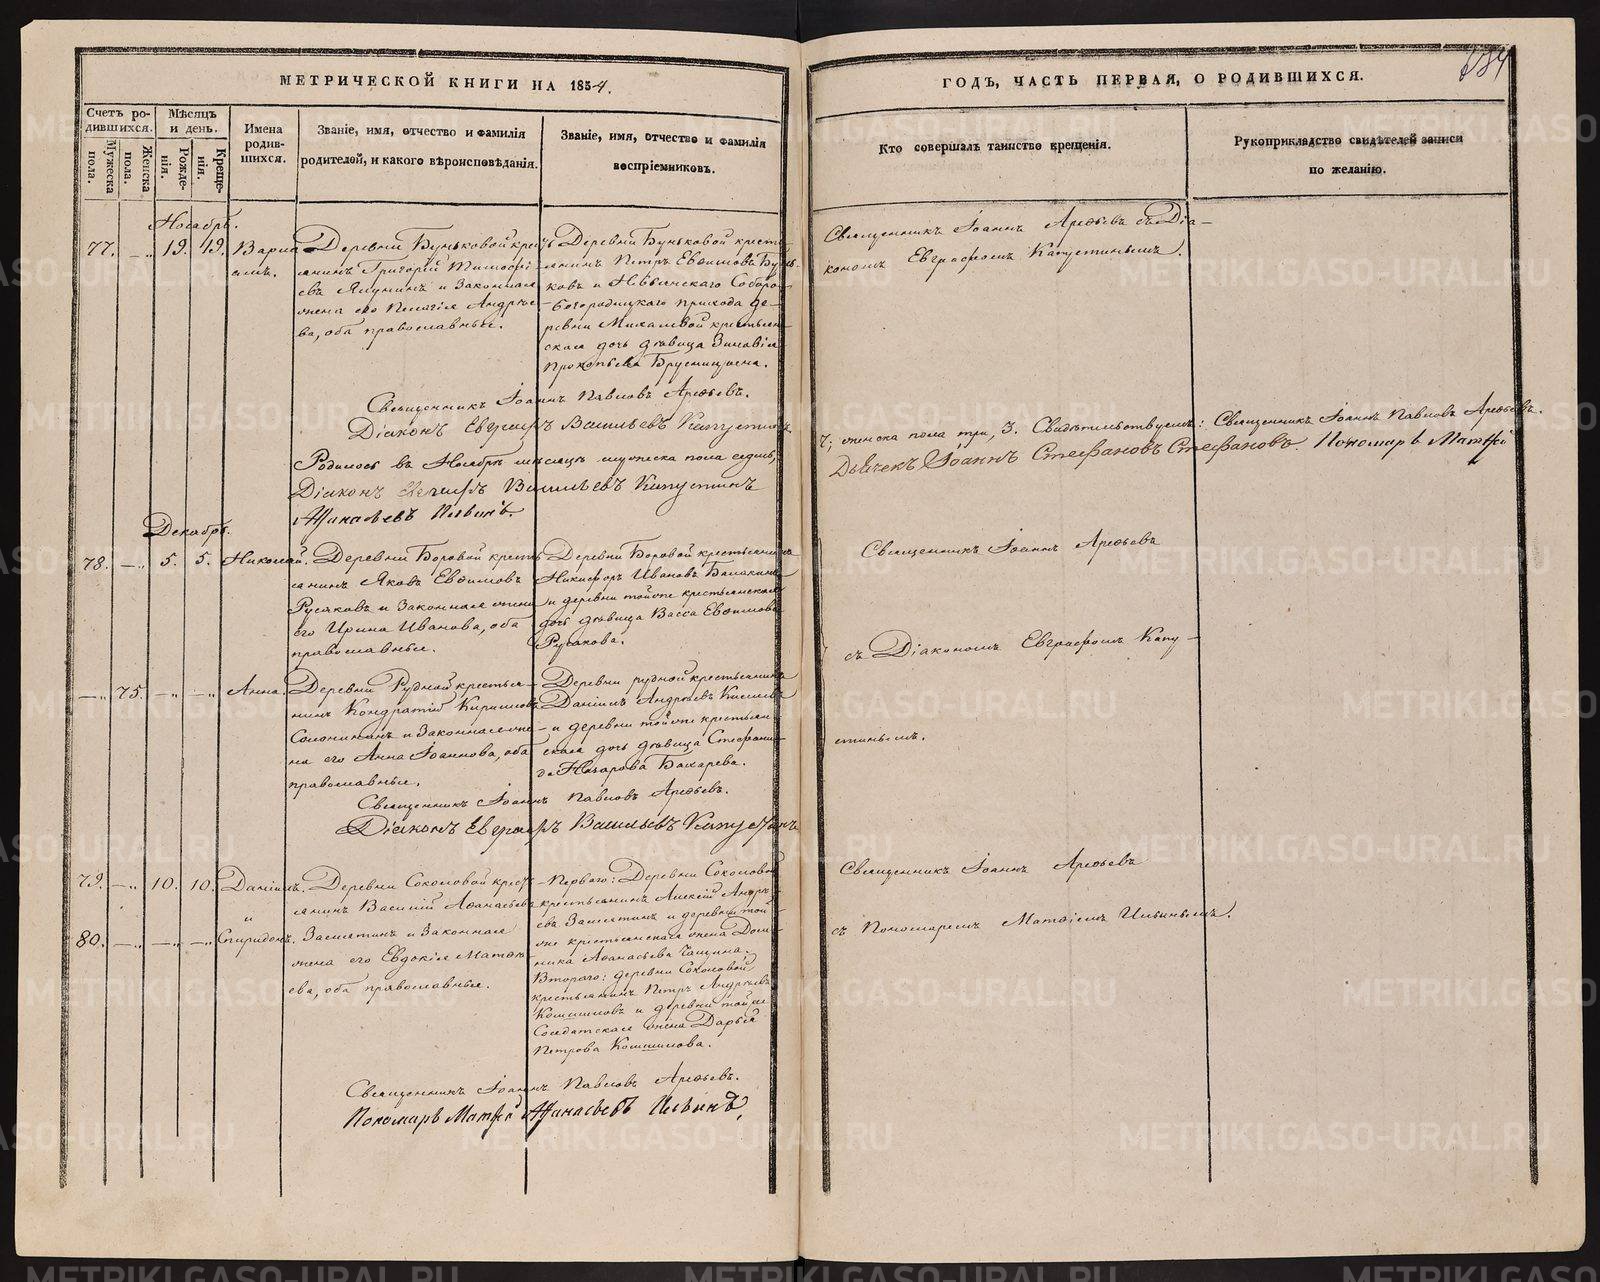 МЕТРИЧЕСКОЙ КНИГИ НА 1854.
Счетъ родившихся.
Мужеска пола.
Женска пола.
Мѣсяцъ и день.
Рожденія.
Крещенія.
Имена родившихся.
Званіе, имя, отчество и фамилія родителей, и какого вѣроисповѣданія.
Званіе, имя, отчество и фамилія воспріемниковъ.
Ноябрь.
77. — „ 19. 19. Варлаамъ.
Деревни Буньковой крестьянинъ Григорій
и законная
жена его Пелагія Андреева, оба православные.
Деревни Буньковой крестьянинъ Петръ Евѳимовъ Буньковъ и Невьянскаго
Богородицкаго прихода деревни
крестьянская дочь дѣвица Зиновія
Прокопьева Брусницына.
Священникъ Іоаннъ Павловъ Арефьевъ.
Діаконъ Евграфъ Васильевъ Капустинъ
Родилось въ Ноябрѣ мѣсяцѣ мужеска пола семь,
Діаконъ Евграфъ Васильевъ Капустинъ
Аѳанасьевъ Ильинъ.
Декабрь.
78. — „ 5. 5. Николай.
Деревни Боровой крестьянинъ Яковъ Евѳимовъ
Русаковъ и законная жена
его Ирина Иванова, оба
православные.
Деревни Боровой крестьянинъ
Никифоръ Ивановъ Балакинъ
и деревни тойже крестьянская
дочь дѣвица Васса Евѳимова
Русакова.
— „ 75. — „ — „ Анна.
Деревни Рудной крестьянинъ Кондратій Кириловъ
Солонининъ и законная жена его Анна Іоаннова, оба
православные.
Деревни Рудной крестьянинъ
Даніилъ Андреевъ Киселевъ
и деревни тойже крестьянская дочь дѣвица Стефанида Назарова Бахарева.
Священникъ Іоаннъ Павловъ Арефьевъ.
Діаконъ Евграфъ Васильевъ Капустинъ
79. — „ 10. 10. Даніилъ.
и
80. — „ — „ — „ Спиридонъ.
Деревни Соколовой крестьянинъ Василій Аѳанасьевъ
Замятинъ и законная
жена его Евдокія Матѳеева, оба православные.
Перваго: Деревни Соколовой
крестьянинъ Алексій Андреевъ Замятинъ и деревни тойже крестьянская жена Домника Аѳанасьева Чащина.
Втораго: деревни Соколовой
крестьянинъ Петръ Андреевъ
и деревни тойже
Солдатская жена Дарья
Петрова
Священникъ Іоаннъ Павловъ Арефьевъ.
Пономарь Матѳей Аѳанасьевъ Ильинъ.
ГОДЪ, ЧАСТЬ ПЕРВАЯ, О РОДИВШИХСЯ.
Кто совершалъ таинство крещенія.
Рукоприкладство свидѣтелей записи по желанію.
Священникъ Іоаннъ Арефьевъ съ Діакономъ Евграфомъ Капустинымъ.
7; женска пола три, 3. Свидѣтельствуемъ: Священникъ Іоаннъ Павловъ Арефьевъ.
Дьячекъ Іоаннъ Стефановъ Стефановъ. Пономарь Матѳей
Священникъ Іоаннъ Арефьевъ
съ Діакономъ Евграфомъ Капустинымъ.
Священникъ Іоаннъ Арефьевъ
съ Пономаремъ Матѳіемъ Ильинымъ.
METRIKI.GASO-URAL.RU